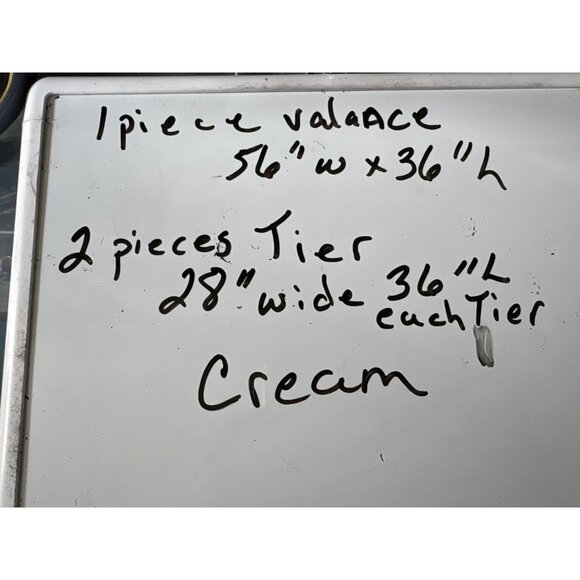 1 piece valance
56" w x 36" L
2 pieces Tier
28" wide 36" L
each Tier
Cream